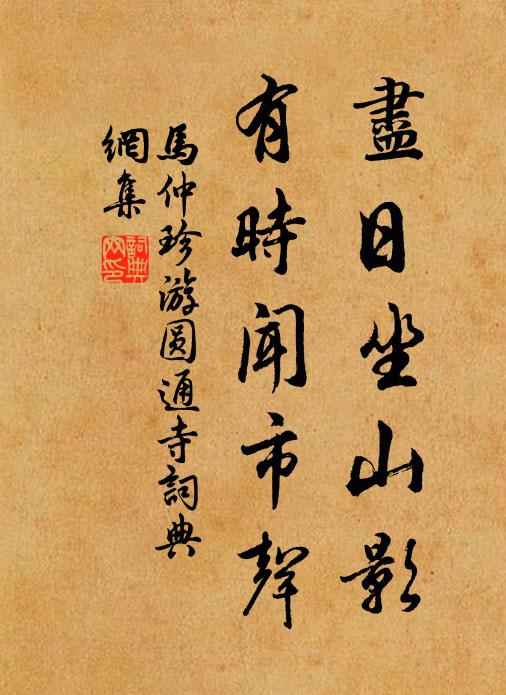 盡日坐山影
有時聞市聲
馬仲珍游圆通寺詞典
網集
詞典
网印